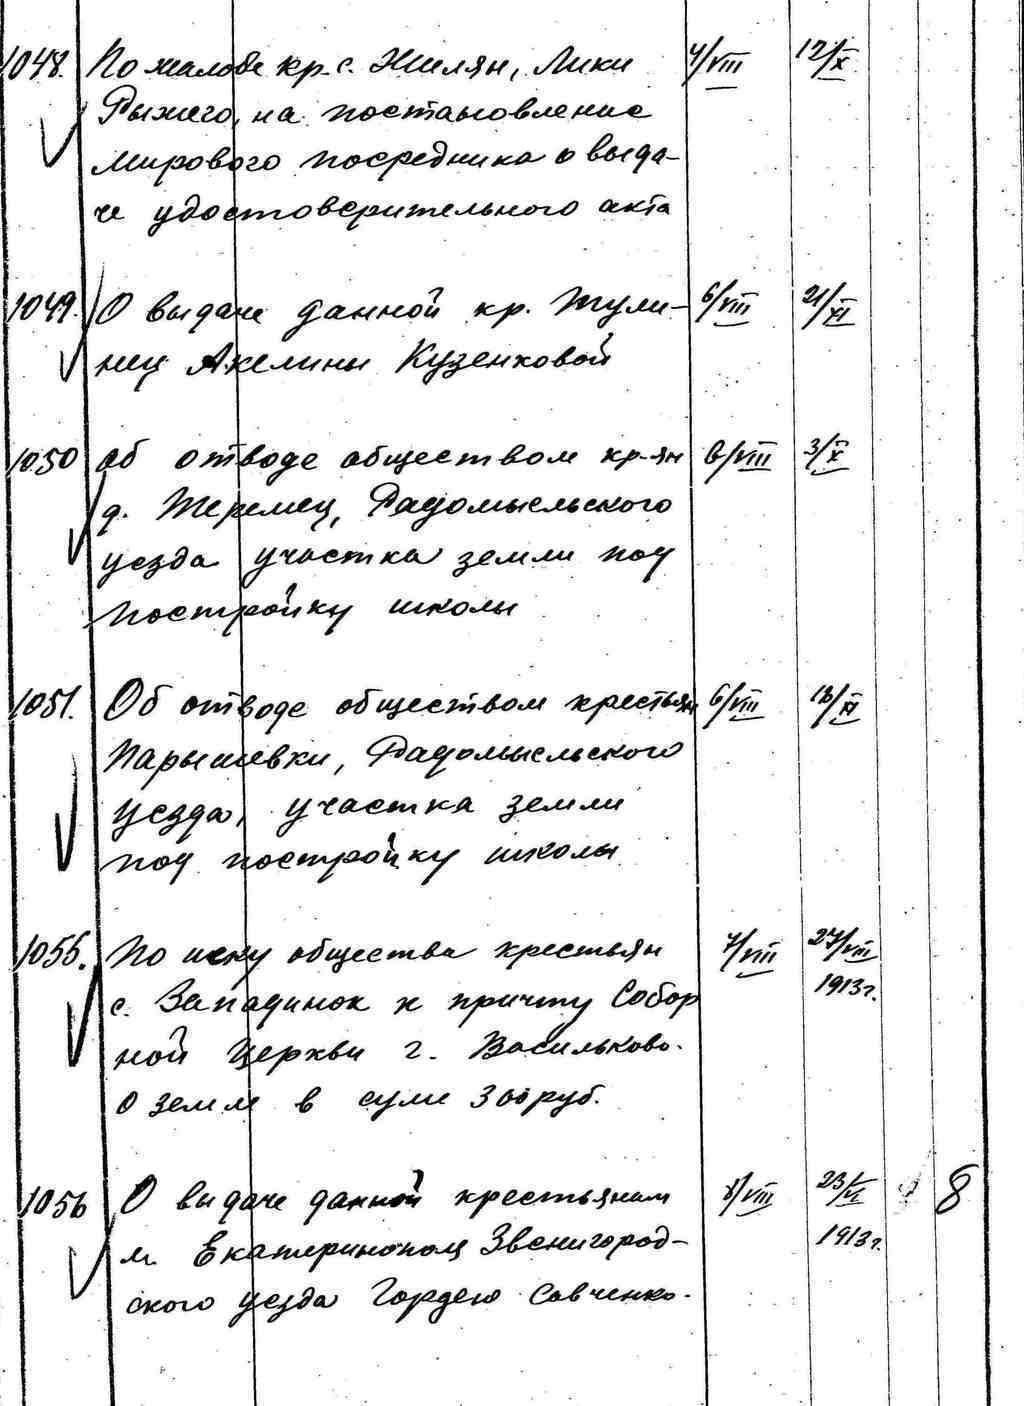 1048. По жалобе кр. с. Жилян, Лики 4/VIII 12/X
Рыжего, на постановление
мирового посредника о выда-
че удостоверительного акта
1049. О выдаче данной кр. Тули- 6/VIII 21/XI
нец Акелины Кузенковой
1050 Об отводе обществом кр-ян 6/VIII 3/X
д. Теремец, Радомысльского
уезда участка земли под
постройку школы
1051. Об отводе обществом крестьян 6/VIII 13/XI
Парышевки, Радомысльского
уезда, участка земли
под постройку школы
1055. По иску общества крестьян 7/VIII 27/VIII
с. Западинок к причту Собор 1913 г.
ной церкви г. Васильково.
о земле в суме 300 руб.
1056 О выдаче данной крестьянам 8/VIII 23/VI 8
м. Екатеринополь Звенигород- 1913 г.
ского уезда Гордею Савченко.